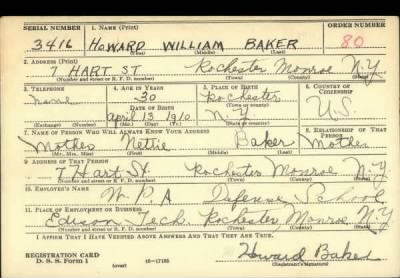 SERIAL NUMBER 1. NAME (Print) ORDER NUMBER
3416 HOWARD WILLIAM BAKER 80
(First) (Middle) (Last)
2. ADDRESS (Print)
7 HART ST. Rochester Monroe N.Y
(Number and street or R. F. D. number) (Town) (County) (State)
3. TELEPHONE 4. AGE IN YEARS 5. PLACE OF BIRTH 6. COUNTRY OF CITIZENSHIP
none 30 Rochester
DATE OF BIRTH (Town or county)
April 13 1910 N Y U.S.
(Exchange) (No.) (Mo.) (Day) (Yr.) (State or country)
7. NAME OF PERSON WHO WILL ALWAYS KNOW YOUR ADDRESS 8. RELATIONSHIP OF THAT PERSON
Mother Nettie Baker Mother
(Mr., Mrs., Miss) (First) (Middle) (Last)
9. ADDRESS OF THAT PERSON
7 Hart St. Rochester Monroe N.Y
(Number and street or R. F. D. number) (Town) (County) (State)
10. EMPLOYER'S NAME
W.P.A Defense School
11. PLACE OF EMPLOYMENT OR BUSINESS
Edison Tech. Rochester Monroe N.Y
(Number and street or R. F. D. number) (Town) (County) (State)
I AFFIRM THAT I HAVE VERIFIED ABOVE ANSWERS AND THAT THEY ARE TRUE.
REGISTRATION CARD Howard Baker
D. S. S. Form 1 (over) 16—17105 (Registrant's signature)